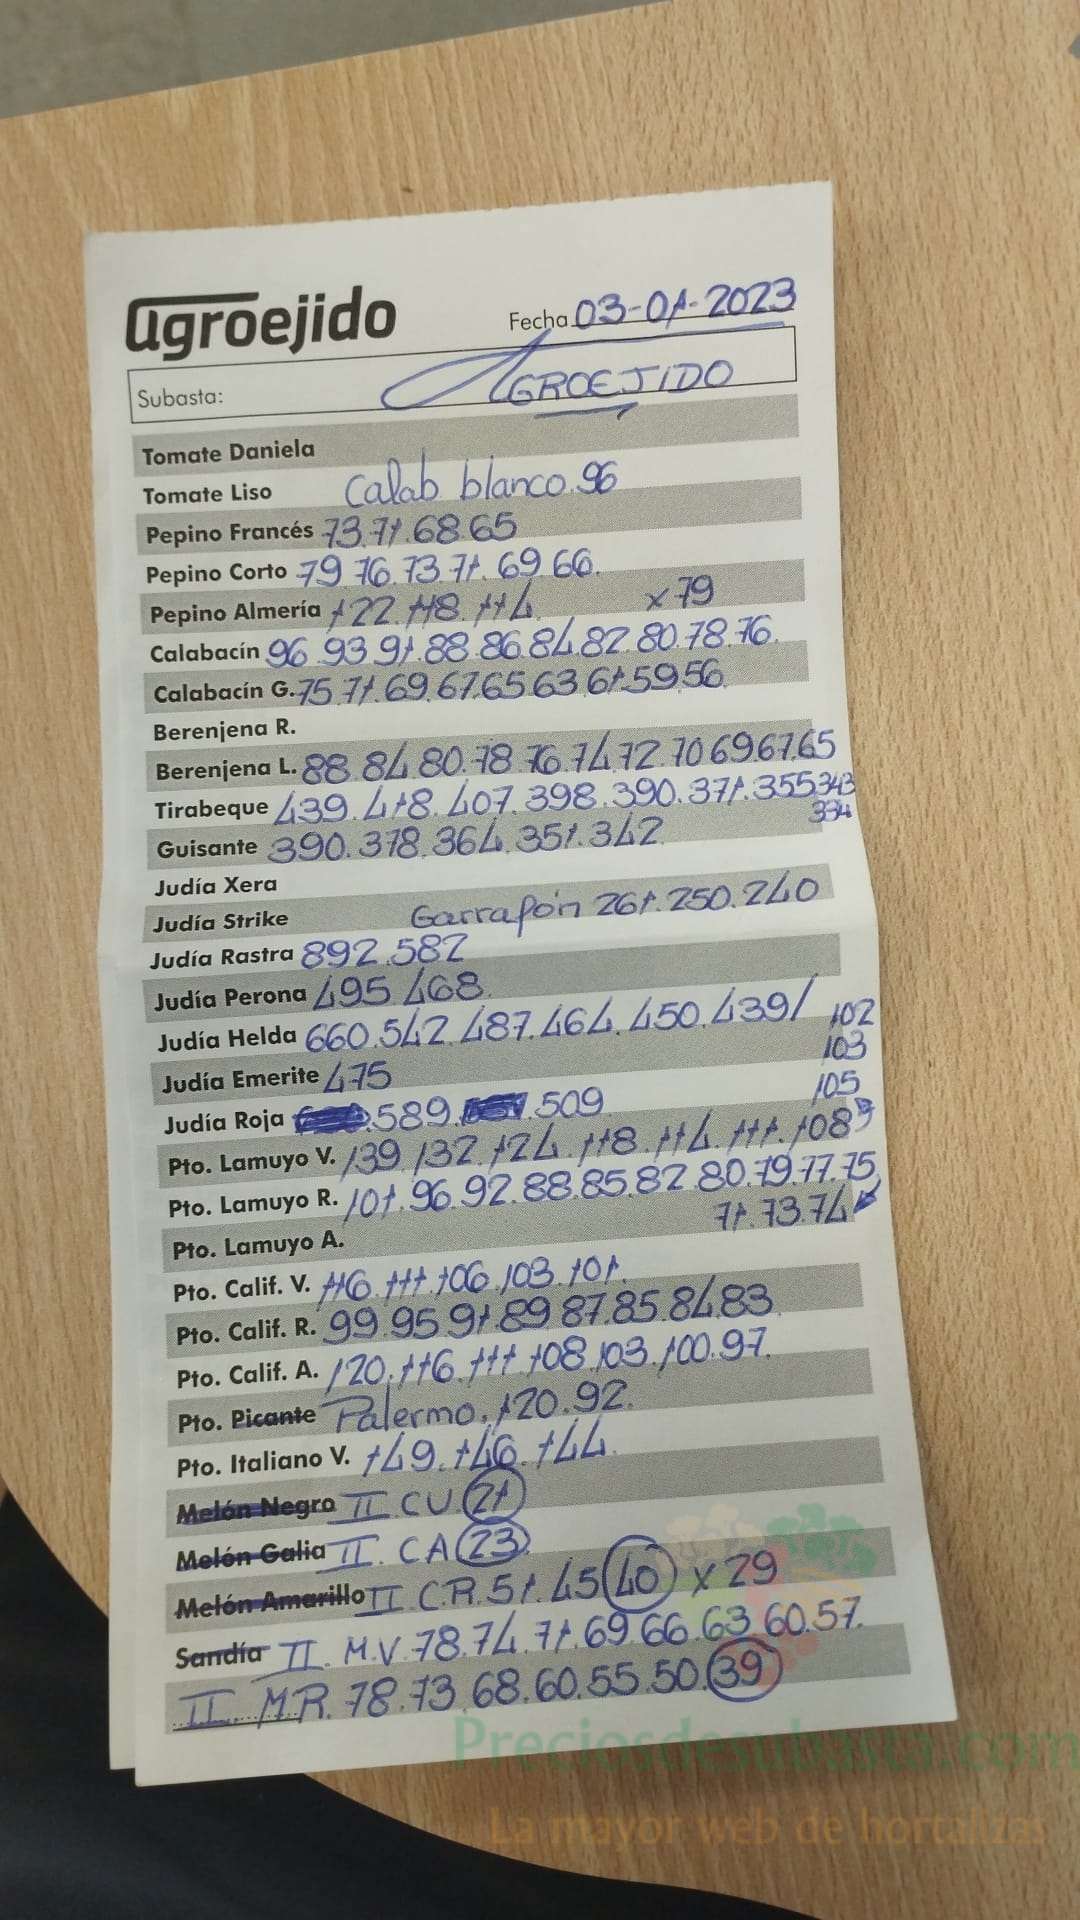 agroejido
Fecha 03-01-2023
Subasta: AGROEJIDO
Tomate Daniela
Tomate Liso Calab blanco. 96
Pepino Francés 73.71.68.65
Pepino Corto 79 76.73.71.69 66.
Pepino Almería 122.118.114 x 79
Calabacín 96.93 91.88.86.84.82.80.78.76.
Calabacín G. 75.71.69.67.65 63 61.59.56.
Berenjena R.
Berenjena L. 88 84 80.78 76.74.72.70 69 67.65
Tirabeque 439.418.407.398.390.371.355.343
334
Guisante 390.378.364.351.342
Judía Xera
Judía Strike Garrafón 261.250.240
Judía Rastra 892.582
Judía Perona 495.468.
Judía Helda 660.542.487.464.450.439/ 102
103
Judía Emerite 475
105
Judía Roja .589. .509
Pto. Lamuyo V. 139.132.124.118.114.111.108
Pto. Lamuyo R. 101.96.92.88.85.82.80.79.77.75
71.73.74
Pto. Lamuyo A.
Pto. Calif. V. 116.111.106.103.101.
Pto. Calif. R. 99.95 91.89 87.85.84.83
Pto. Calif. A. 120.116.111.108.103.100.97.
Pto. Picante Palermo. 120.92.
Pto. Italiano V. 149.146.144.
Melón Negro II CU. 21
Melón Galia II. CA 23
Melón Amarillo II C.R. 51.45 40 x 29
Sandía II. M.V. 78.74.71.69 66 63 60.57.
II. MR. 78.73.68.60.55.50. 39
Preciosdesubasta.com
La mayor web de hortalizas